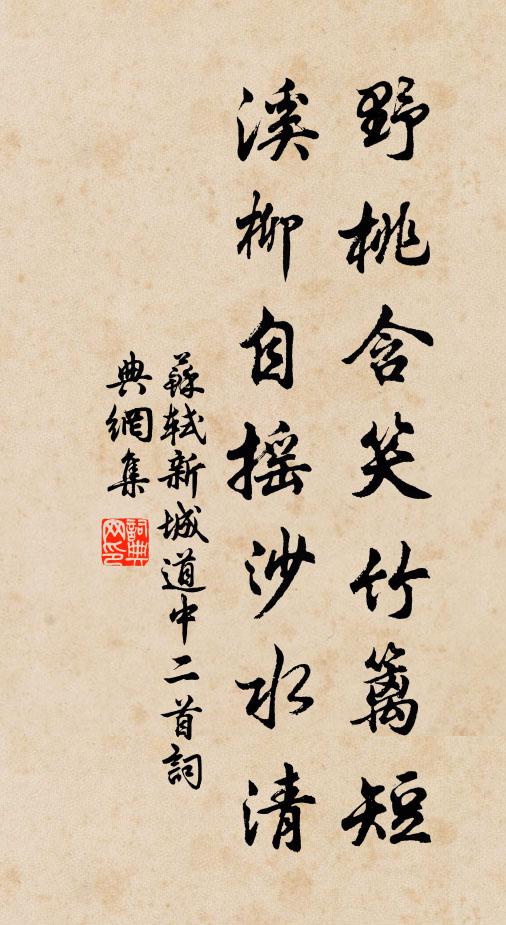 野桃含笑竹籬短
溪柳自摇沙水清
蘇軾新城道中二首詞
典網集
詞典网印